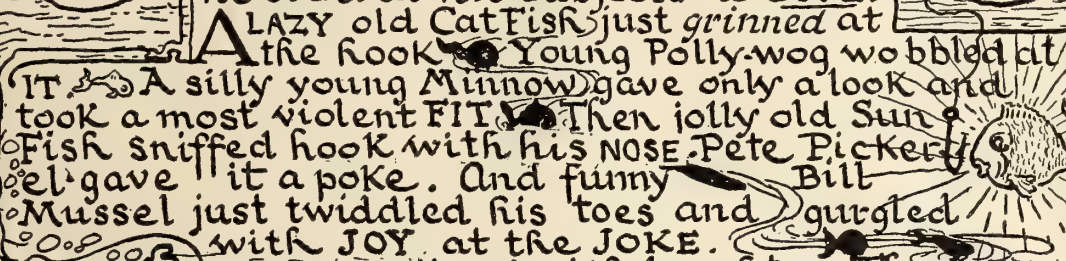 A LAZY old CatFish just grinned at
the hook Young Polly-wog wobbled at
IT. A silly young Minnow gave only a look and
took a most violent FIT. Then jolly old Sun
Fish sniffed hook with his NOSE. Pete Picker-
el gave it a poke. And funny Bill
Mussel just twiddled his toes and gurgled
with JOY at the JOKE.